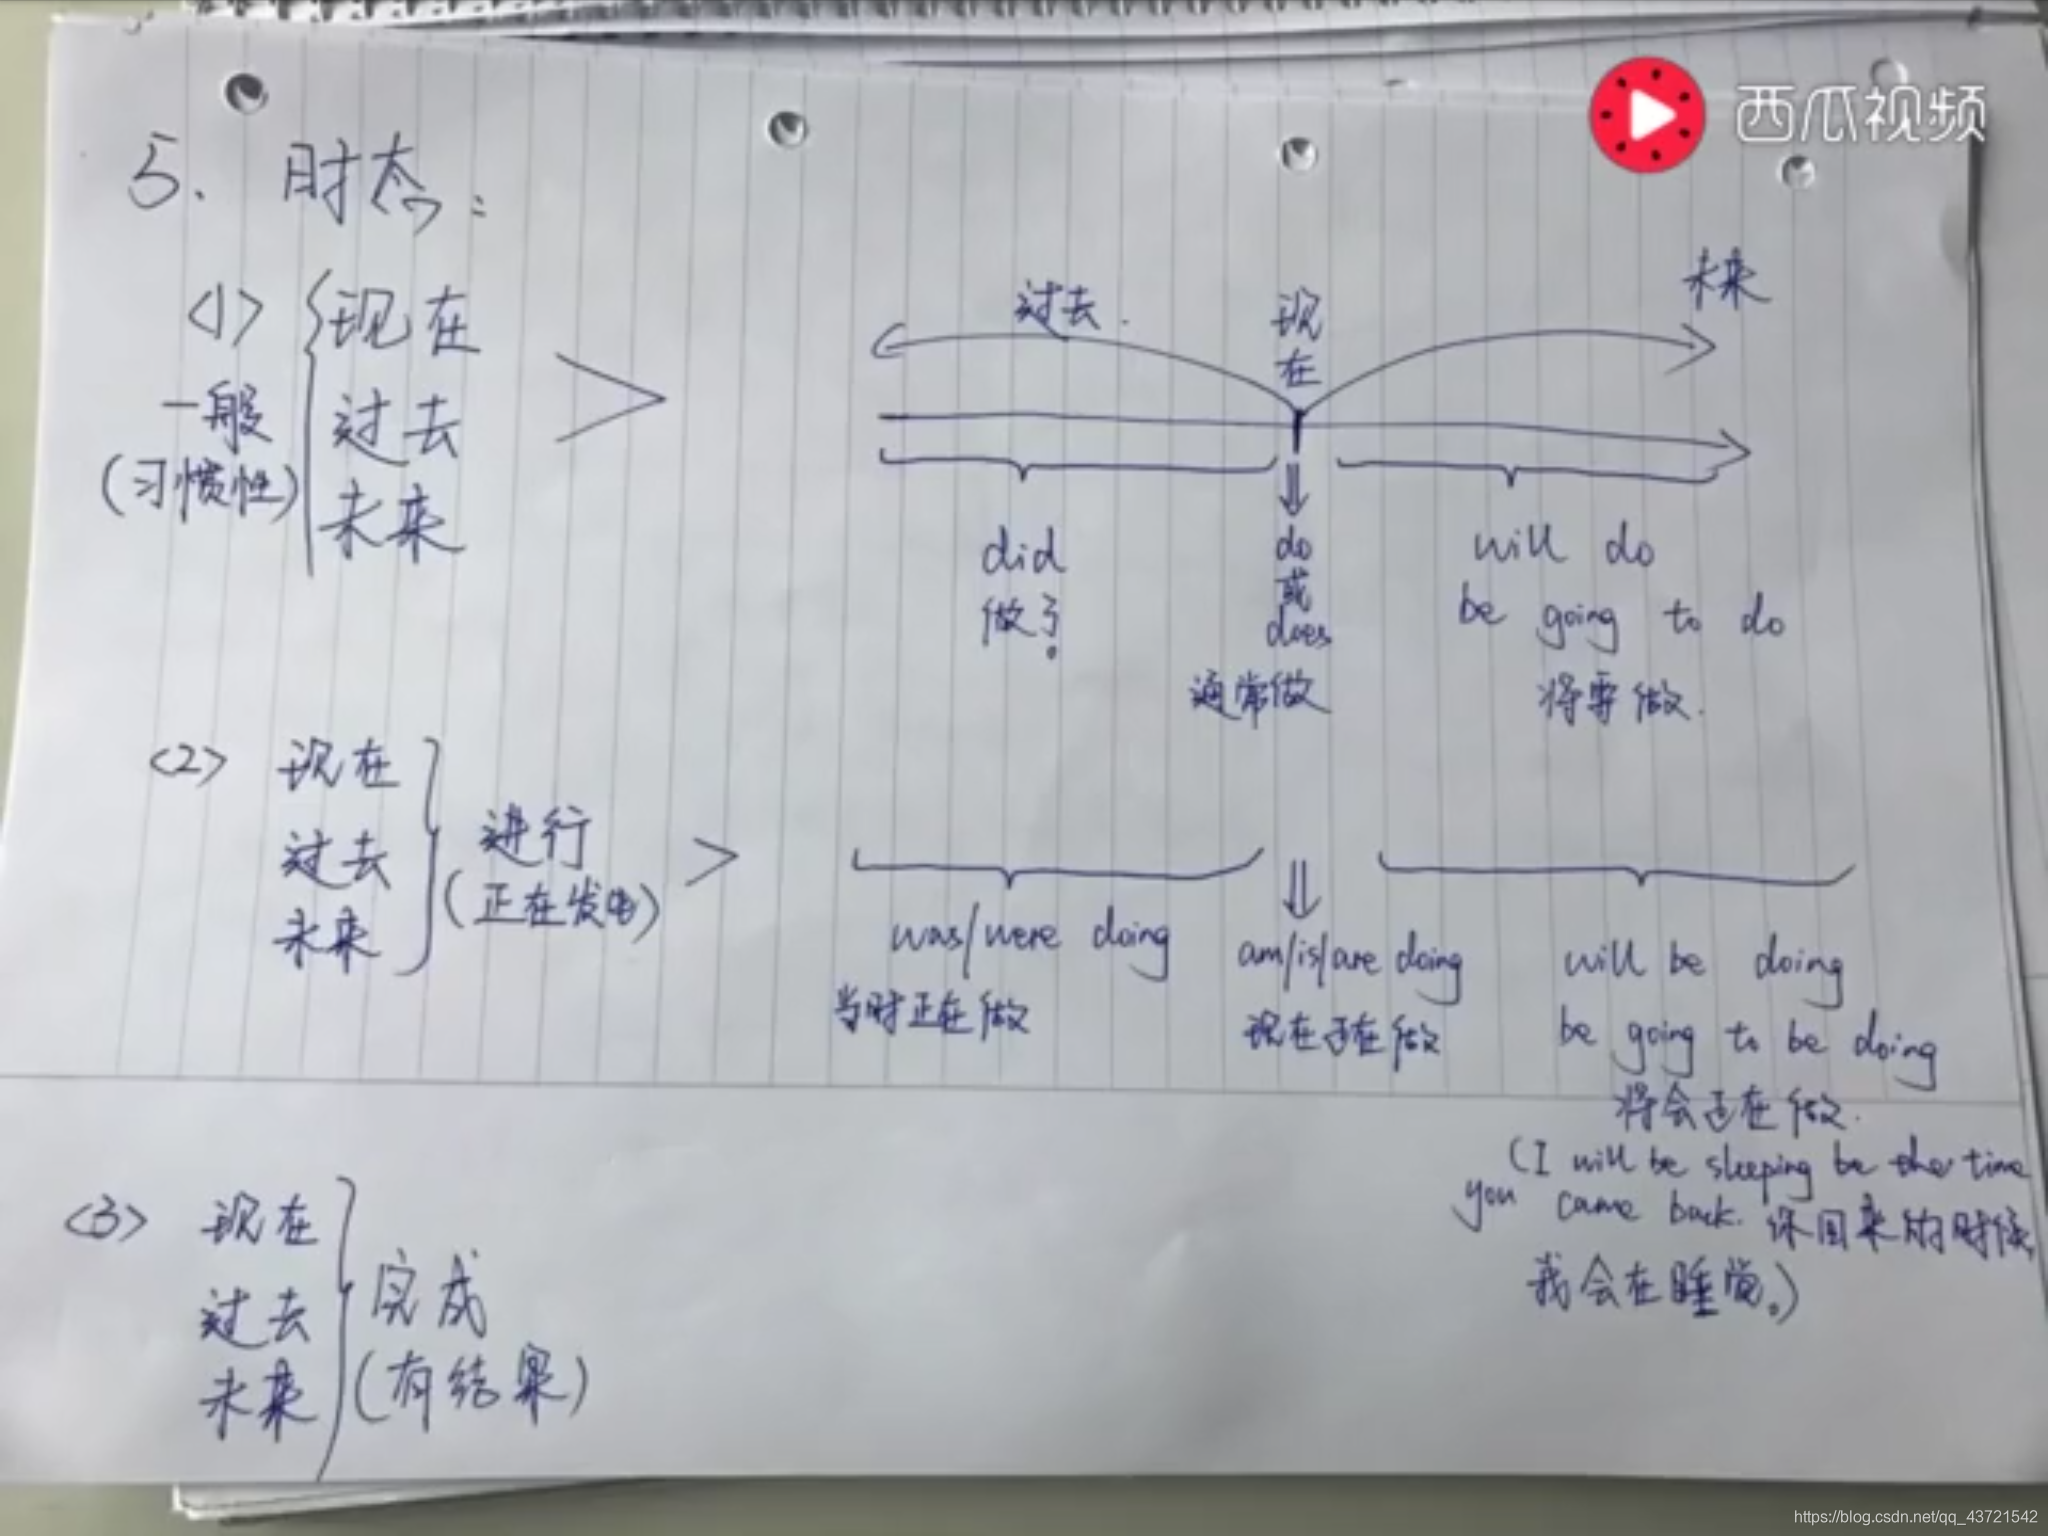 西瓜视频
5. 时态:
<1> 现在
一般 过去
(习惯性) 未来
过去. 现在 未来
did
做了。
do
或
does
通常做
will do
be going to do
将要做.
<2> 现在
过去
未来
进行
(正在发生)
was/were doing
当时正在做
am/is/are doing
现在正在做
will be doing
be going to be doing
将会正在做.
(I will be sleeping be the time
you came back. 你回来的时候
我会在睡觉。)
<3> 现在
过去
未来
完成
(有结果)
https://blog.csdn.net/qq_43721542